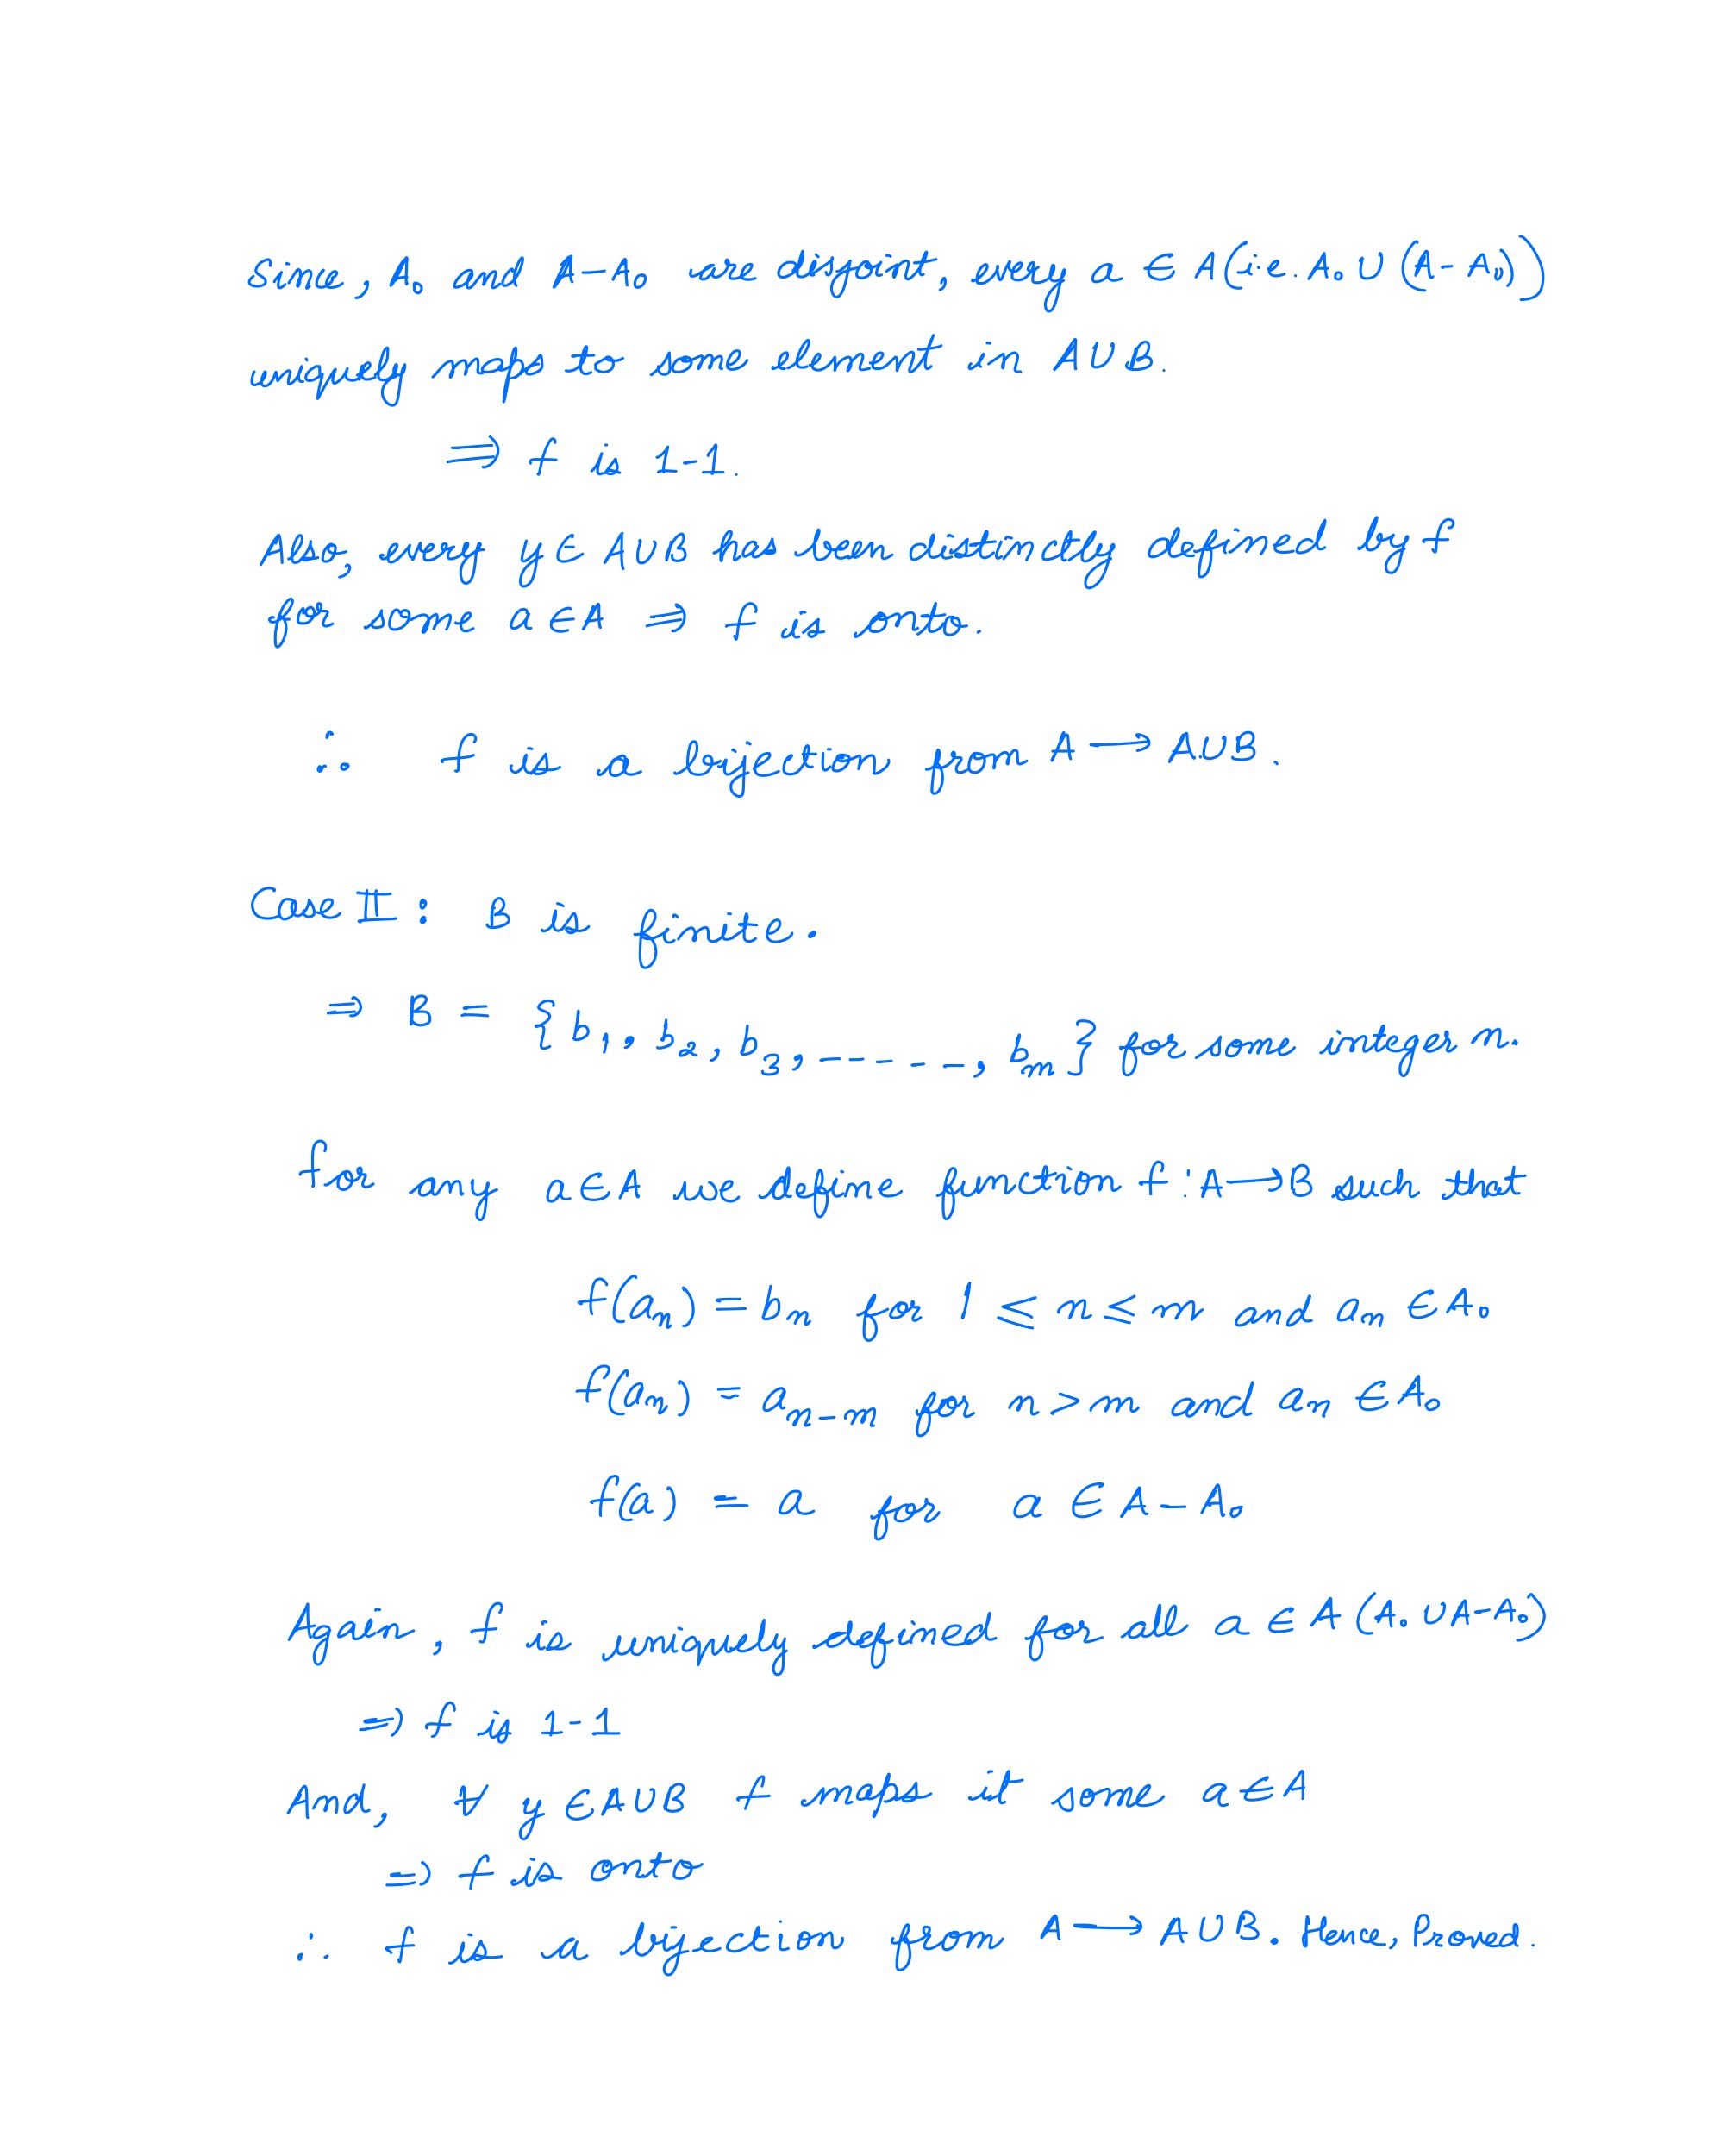 Since, A₀ and A-A₀ are disjoint, every a ∈ A(i.e. A₀ ∪ (A-A₀))
uniquely maps to some element in A∪B.
⇒ f is 1-1.
Also, every y ∈ A∪B has been distinctly defined by f
for some a ∈ A ⇒ f is onto.
∴ f is a bijection from A → A∪B.
Case II : B is finite.
⇒ B = {b₁, b₂, b₃, ------, bₘ} for some integer n.
for any a∈A we define function f : A→B such that
f(aₙ) = bₙ for 1 ≤ n ≤ m and aₙ ∈ A₀
f(aₙ) = aₙ₋ₘ for n > m and aₙ ∈ A₀
f(a) = a for a ∈ A - A₀
Again, f is uniquely defined for all a ∈ A (A₀ ∪ A-A₀)
⇒ f is 1-1
And, ∀ y ∈ A∪B f maps it some a ∈ A
⇒ f is onto
∴ f is a bijection from A → A∪B. Hence, Proved.